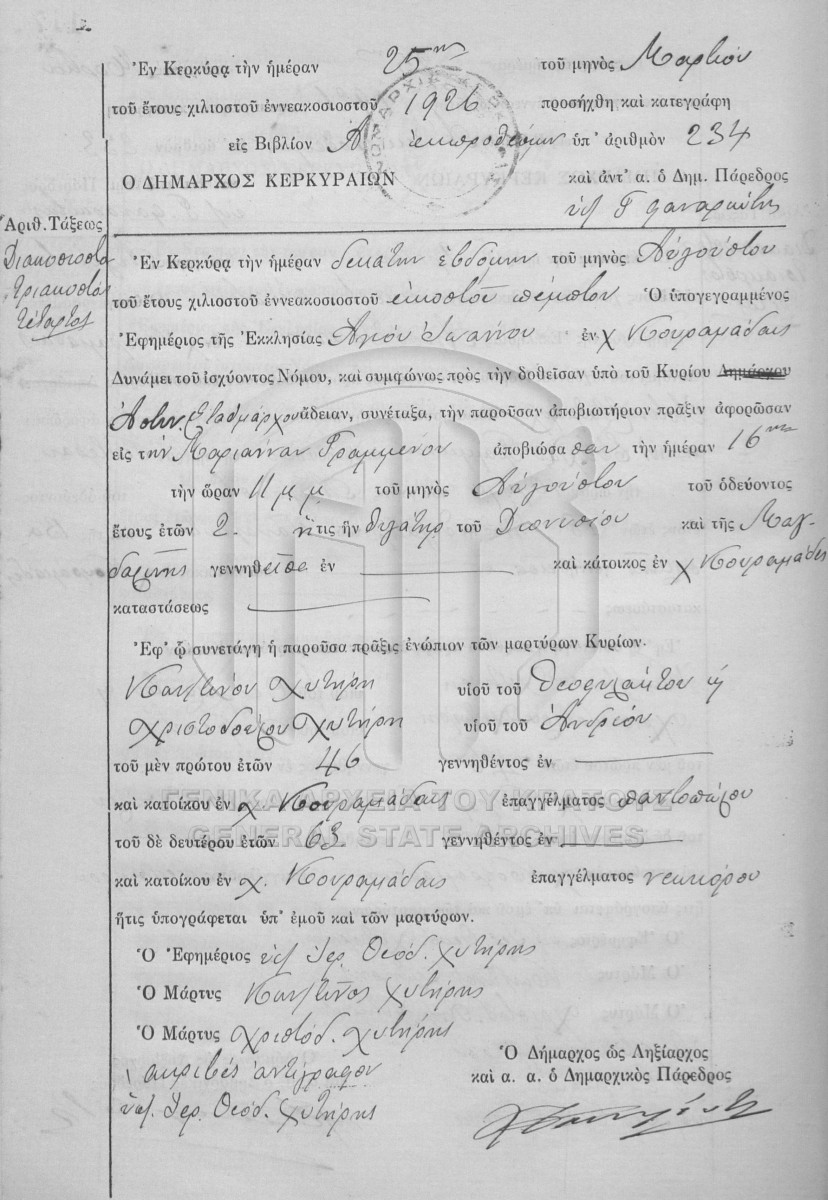 Ἐν Κερκύρᾳ τὴν ἡμέραν 25ην τοῦ μηνὸς Μαρτίου
τοῦ ἔτους χιλιοστοῦ ἐννεακοσιοστοῦ 1926 προσήχθη καὶ κατεγράφη
εἰς Βιβλίον Α ἐκπροθέσμων ὑπ' ἀριθμὸν 234
Ο ΔΗΜΑΡΧΟΣ ΚΕΡΚΥΡΑΙΩΝ καὶ ἀντ' α. ὁ Δημ. Πάρεδρος
Ἀριθ. Τάξεως
Διακοσιοστὸς
τριακοστὸς
τέταρτος
Ἐν Κερκύρᾳ τὴν ἡμέραν δεκάτην ἑβδόμην τοῦ μηνὸς Αὐγούστου
τοῦ ἔτους χιλιοστοῦ ἐννεακοσιοστοῦ εἰκοστοῦ πέμπτου Ὁ ὑπογεγραμμένος
Ἐφημέριος τῆς Ἐκκλησίας Ἁγίου Ἰωάννου ἐν χ Κουραμάδαις
Δυνάμει τοῦ ἰσχύοντος Νόμου, καὶ συμφώνως πρὸς τὴν δοθεῖσαν ὑπὸ τοῦ Κυρίου Δημάρχου
Ἀστυν. Σταθμάρχου ἄδειαν, συνέταξα, τὴν παροῦσαν ἀποβιωτήριον πρᾶξιν ἀφορῶσαν
εἰς τὴν Μαριάνναν Γραμμένου ἀποβιώσασαν τὴν ἡμέραν 16ην
τὴν ὥραν 11 μμ τοῦ μηνὸς Αὐγούστου τοῦ ὁδεύοντος
ἔτους ἐτῶν 2 ἥτις ἦν θυγάτηρ τοῦ Διονυσίου καὶ τῆς Μαγ-
δαρινῆς γεννηθεῖσα ἐν καὶ κάτοικος ἐν χ Κουραμάδες
καταστάσεως
Ἐφ' ᾧ συνετάγη ἡ παροῦσα πρᾶξις ἐνώπιον τῶν μαρτύρων Κυρίων.
Κων/τίνου Χυτήρη υἱοῦ τοῦ Θεοφυλάκτου
Χριστοδούλου Χυτήρη υἱοῦ τοῦ Ἀνδρέου
τοῦ μὲν πρώτου ἐτῶν 46 γεννηθέντος ἐν
καὶ κατοίκου ἐν χ. Κουραμάδαις ἐπαγγέλματος παντοπώλου
ΓΕΝΙΚΑ ΑΡΧΕΙΑ ΤΟΥ ΚΡΑΤΟΥΣ
τοῦ δὲ δευτέρου ἐτῶν 63 γεννηθέντος ἐν
GENERAL STATE ARCHIVES
καὶ κατοίκου ἐν χ. Κουραμάδαις ἐπαγγέλματος νεωκόρου
ἥτις ὑπογράφεται ὑπ' ἐμοῦ καὶ τῶν μαρτύρων.
Ὁ Ἐφημέριος Ἱερ. Θεόδ. Χυτήρης
Ὁ Μάρτυς Κων/τῖνος Χυτήρης
Ὁ Μάρτυς Χριστόδ. Χυτήρης
ἀκριβὲς ἀντίγραφον
Ἱερ. Θεόδ. Χυτήρης
Ὁ Δήμαρχος ὡς Ληξίαρχος
καὶ α. α. ὁ Δημαρχικὸς Πάρεδρος